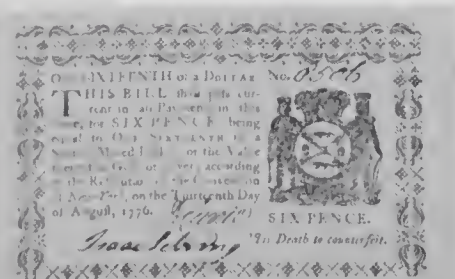 SIXTEENTH of a DOLLAR No.
THIS BILL shall pass cur-
rent in all Payments in this
for SIX PENCE, being
equal to ONE SIXTEENTH of a
Milled or the Value
Gold or Silver, according
to the Resolution of the Convention
of New-York, on the Thirteenth Day
of August, 1776.
SIX PENCE.
Isaac Sebring
'Tis Death to counterfeit.